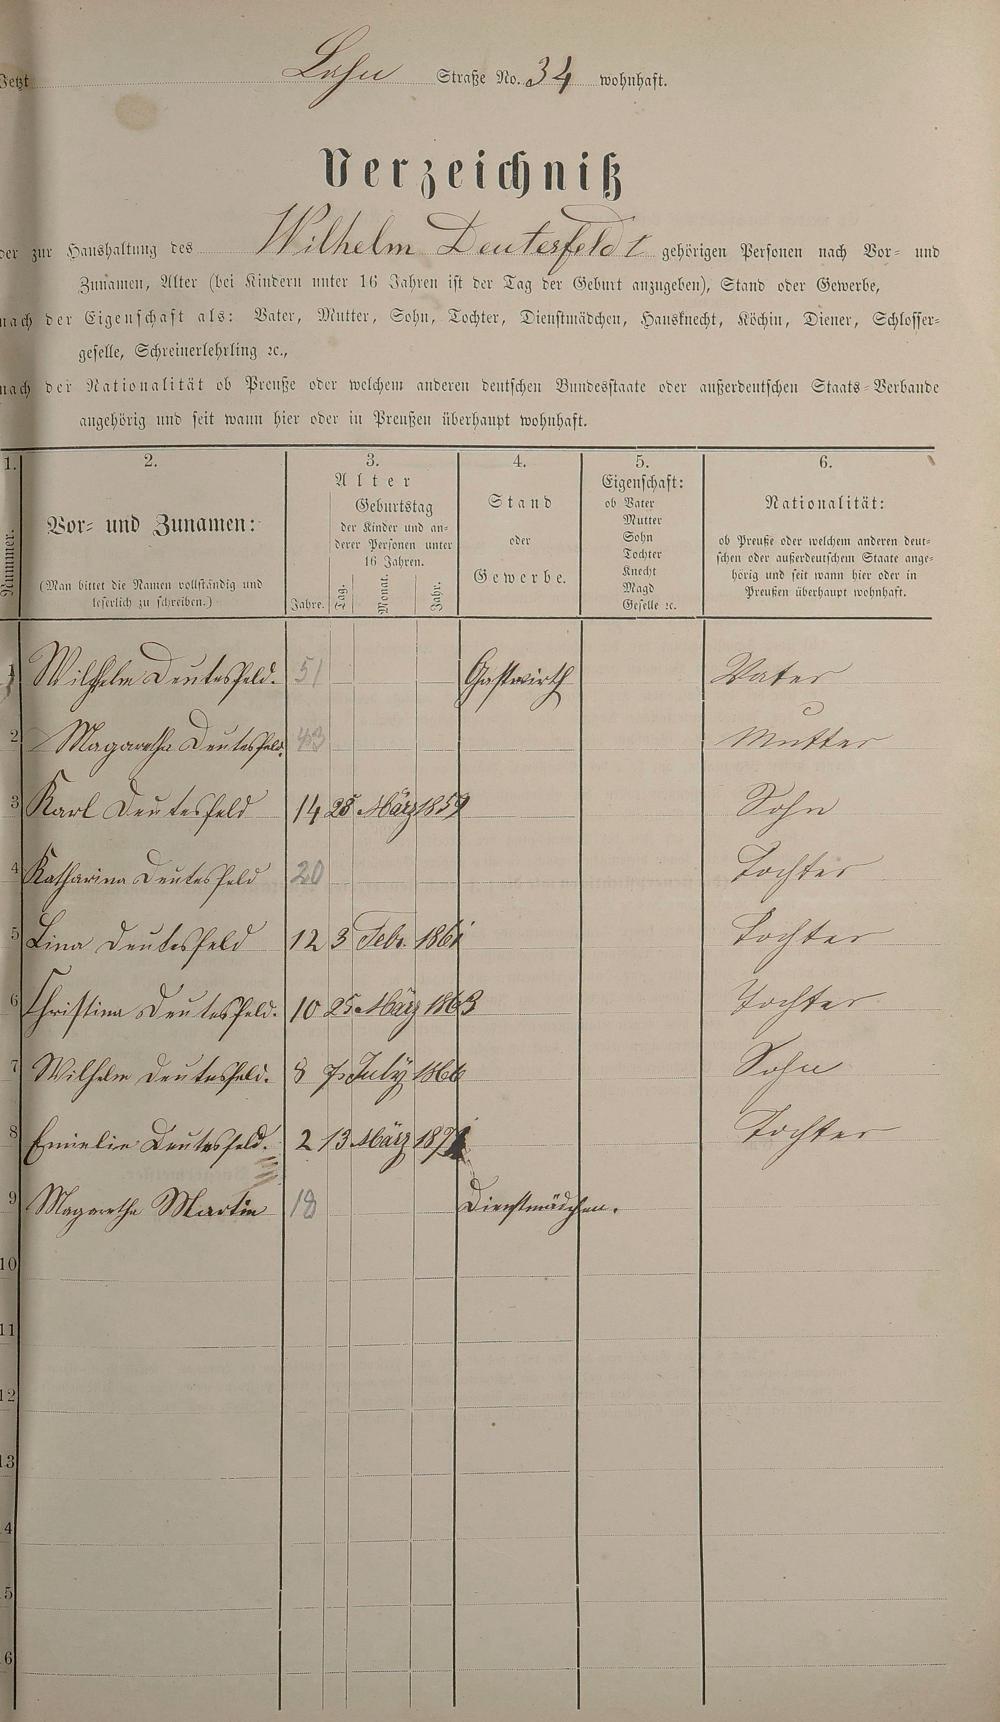 Jetzt Lahn Straße No. 34 wohnhaft.
Verzeichniß
der zur Haushaltung des Wilhelm Deutesfeldt gehörigen Personen nach Vor- und
Zunamen, Alter (bei Kindern unter 16 Jahren ist der Tag der Geburt anzugeben), Stand oder Gewerbe,
nach der Eigenschaft als: Vater, Mutter, Sohn, Tochter, Dienstmädchen, Hausknecht, Köchin, Diener, Schlosser-
geselle, Schreinerlehrling ꝛc.,
nach der Nationalität ob Preuße oder welchem anderen deutschen Bundesstaate oder außerdeutschen Staats-Verbande
angehörig und seit wann hier oder in Preußen überhaupt wohnhaft.
1. 2. 3. 4. 5. 6.
Nummer.
Vor- und Zunamen:
(Man bittet die Namen vollständig und
leserlich zu schreiben.)
Alter
Geburtstag
der Kinder und an-
derer Personen unter
16 Jahren.
Jahre. Tag. Monat. Jahr.
Stand
oder
Gewerbe.
Eigenschaft:
ob Vater
Mutter
Sohn
Tochter
Knecht
Magd
Geselle ꝛc.
Nationalität:
ob Preuße oder welchem anderen deut-
schen oder außerdeutschem Staate ange-
hörig und seit wann hier oder in
Preußen überhaupt wohnhaft.
1 Wilhelm Deutesfeld. 51 Gastwirth Vater
2 Magaretha Deutesfeld. 43 Mutter
3 Karl Deutesfeld 14 28 März 1859 Sohn
4 Katharina Deutesfeld 20 Tochter
5 Lina Deutesfeld 12 3 Febr. 1861 Tochter
6 Christina Deutesfeld. 10 25 März 1863 Tochter
7 Wilhelm Deutesfeld. 8 7. July 1866 Sohn
8 Emielie Deutesfeld. 2 13 März 1871 Tochter
9 Magaretha Martin 18 Dienstmädchen.
10
11
12
13
4
5
6